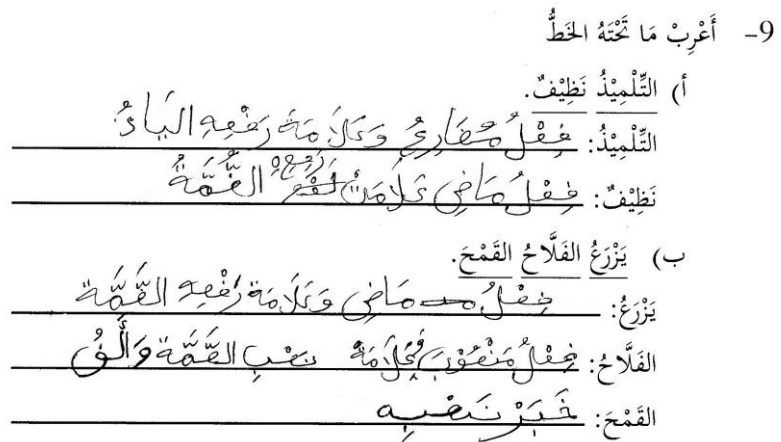 9- أَعْرِبْ مَا تَحْتَهُ الخَطُّ
أ) التِّلْمِيْذُ نَظِيْفٌ.
التِّلْمِيْذُ: فِعْلُ مُضَارِعُ وَعَلَامَة رَفْعِهِ اليَاءُ
نَظِيْفٌ: فِعْلُ مَاضِي عَلَامَتْ رفعِهِ الضُّمَّةُ
ب) يَزْرَعُ الفَلَّاحُ القَمْحَ.
يَزْرَعُ: فِعْلُ مَاضِي وَعَلَامَة رَفْعِهِ الضَّمَّة
الفَلَّاحُ: فِعْلُ مَنْصُوْبَ عَلَامَة نَصْبِ الضَّمَّة وَأَلِفُ
القَمْحَ: خَبَرْ نَصْبِه